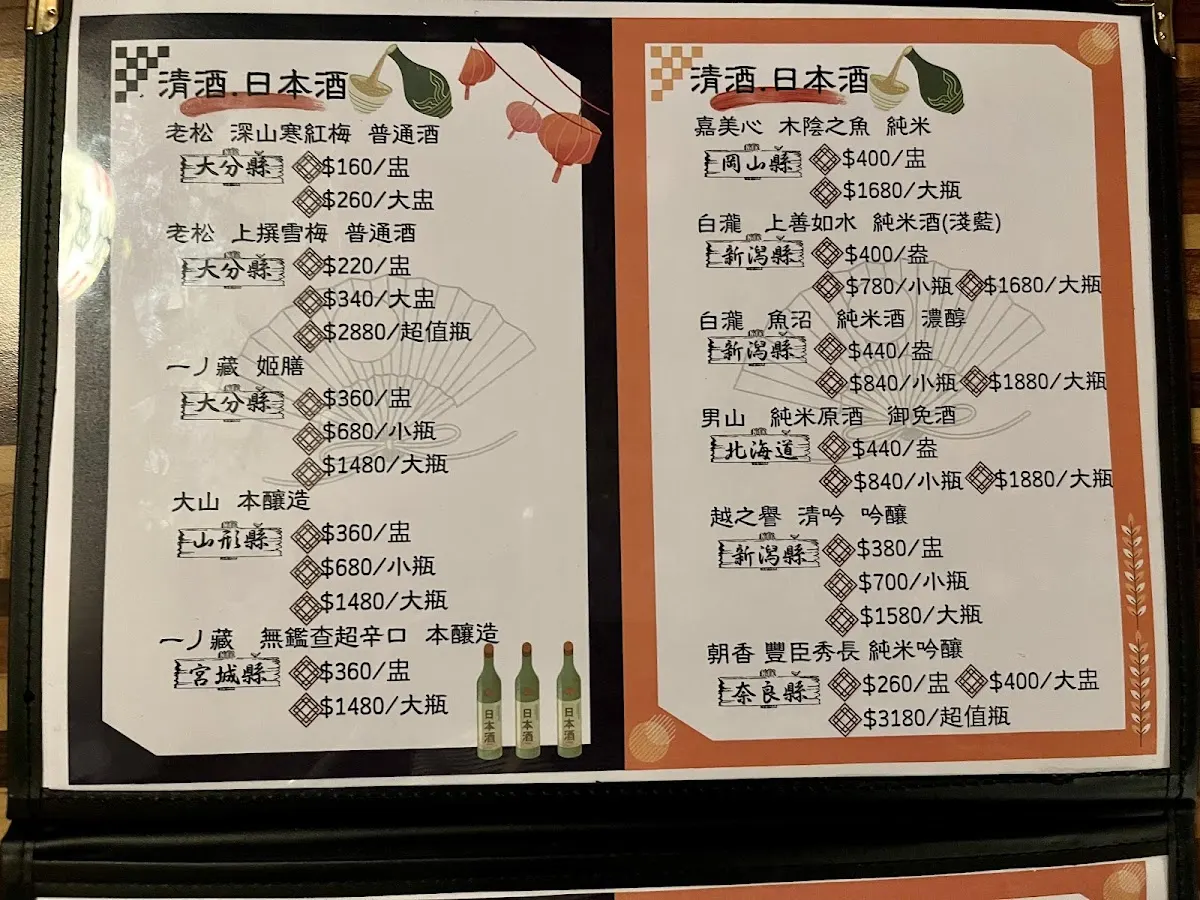 清酒.日本酒
老松 深山寒紅梅 普通酒
大分縣 $160/盅
$260/大盅
老松 上撰雪梅 普通酒
大分縣 $220/盅
$340/大盅
$2880/超值瓶
一ノ藏 姬膳
大分縣 $360/盅
$680/小瓶
$1480/大瓶
大山 本釀造
山形縣 $360/盅
$680/小瓶
$1480/大瓶
一ノ藏 無鑑查超辛口 本釀造
宮城縣 $360/盅
$1480/大瓶
日本酒 日本酒 日本酒
清酒.日本酒
嘉美心 木陰之魚 純米
岡山縣 $400/盅
$1680/大瓶
白瀧 上善如水 純米酒(淺藍)
新潟縣 $400/盎
$780/小瓶 $1680/大瓶
白瀧 魚沼 純米酒 濃醇
新潟縣 $440/盎
$840/小瓶 $1880/大瓶
男山 純米原酒 御免酒
北海道 $440/盎
$840/小瓶 $1880/大瓶
越之譽 清吟 吟釀
新潟縣 $380/盅
$700/小瓶
$1580/大瓶
朝香 豐臣秀長 純米吟釀
奈良縣 $260/盅 $400/大盅
$3180/超值瓶